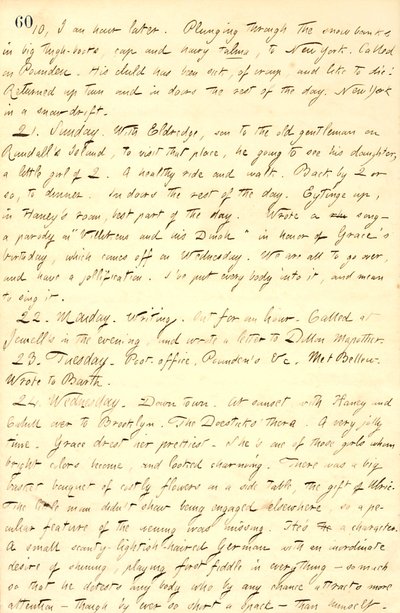 60
10, I an hour later. Plunging through the snow banks
in big thigh-boots, cap and hairy talma, to New York. Called
on Pounden. His child has been sick, of croup, and like to die!
Returned up town and in doors the rest of the day. New York
in a snow drift.
21. Sunday. With Eldredge, son to the old gentleman on
Randall's Island, to visit that place, he going to see his daughter,
a little girl of 2. A healthy ride and walk. Back by 2 or
so, to dinner. In doors the rest of the day. Eytinge up,
in Haney's room, best part of the day. Wrote a song —
a parody on "Villikens and his Dinah" in honor of Grace's
birthday, which comes off on Wednesday. We are all to go over,
and have a jollification. I've put every body into it, and mean
to sing it.
22. Monday. Writing. Out for an hour. Called at
Jewell's in the evening, and wrote a letter to Dillon Mapother.
23. Tuesday. Post-office, Pounden's &c. Met Bellew.
Wrote to Barth.
24. Wednesday. Down town. At sunset with Haney and
Cahill over to Brooklyn. The Doesticks' there. A very jolly
time. Grace drest her prettiest. She is one of those girls whom
bright colors become, and looked charming. There was a big
basket bouquet of costly flowers on a side table, the gift of
The little man didn't show being engaged elsewhere, so a pe-
culiar feature of the evening was missing. He's a character.
A small scanty-lightish-haired German with an inordinate
desire of shining, playing first fiddle in everything — so much
so that he detests any body who by any chance attracts more
attention — though by ever so short a space — than himself.